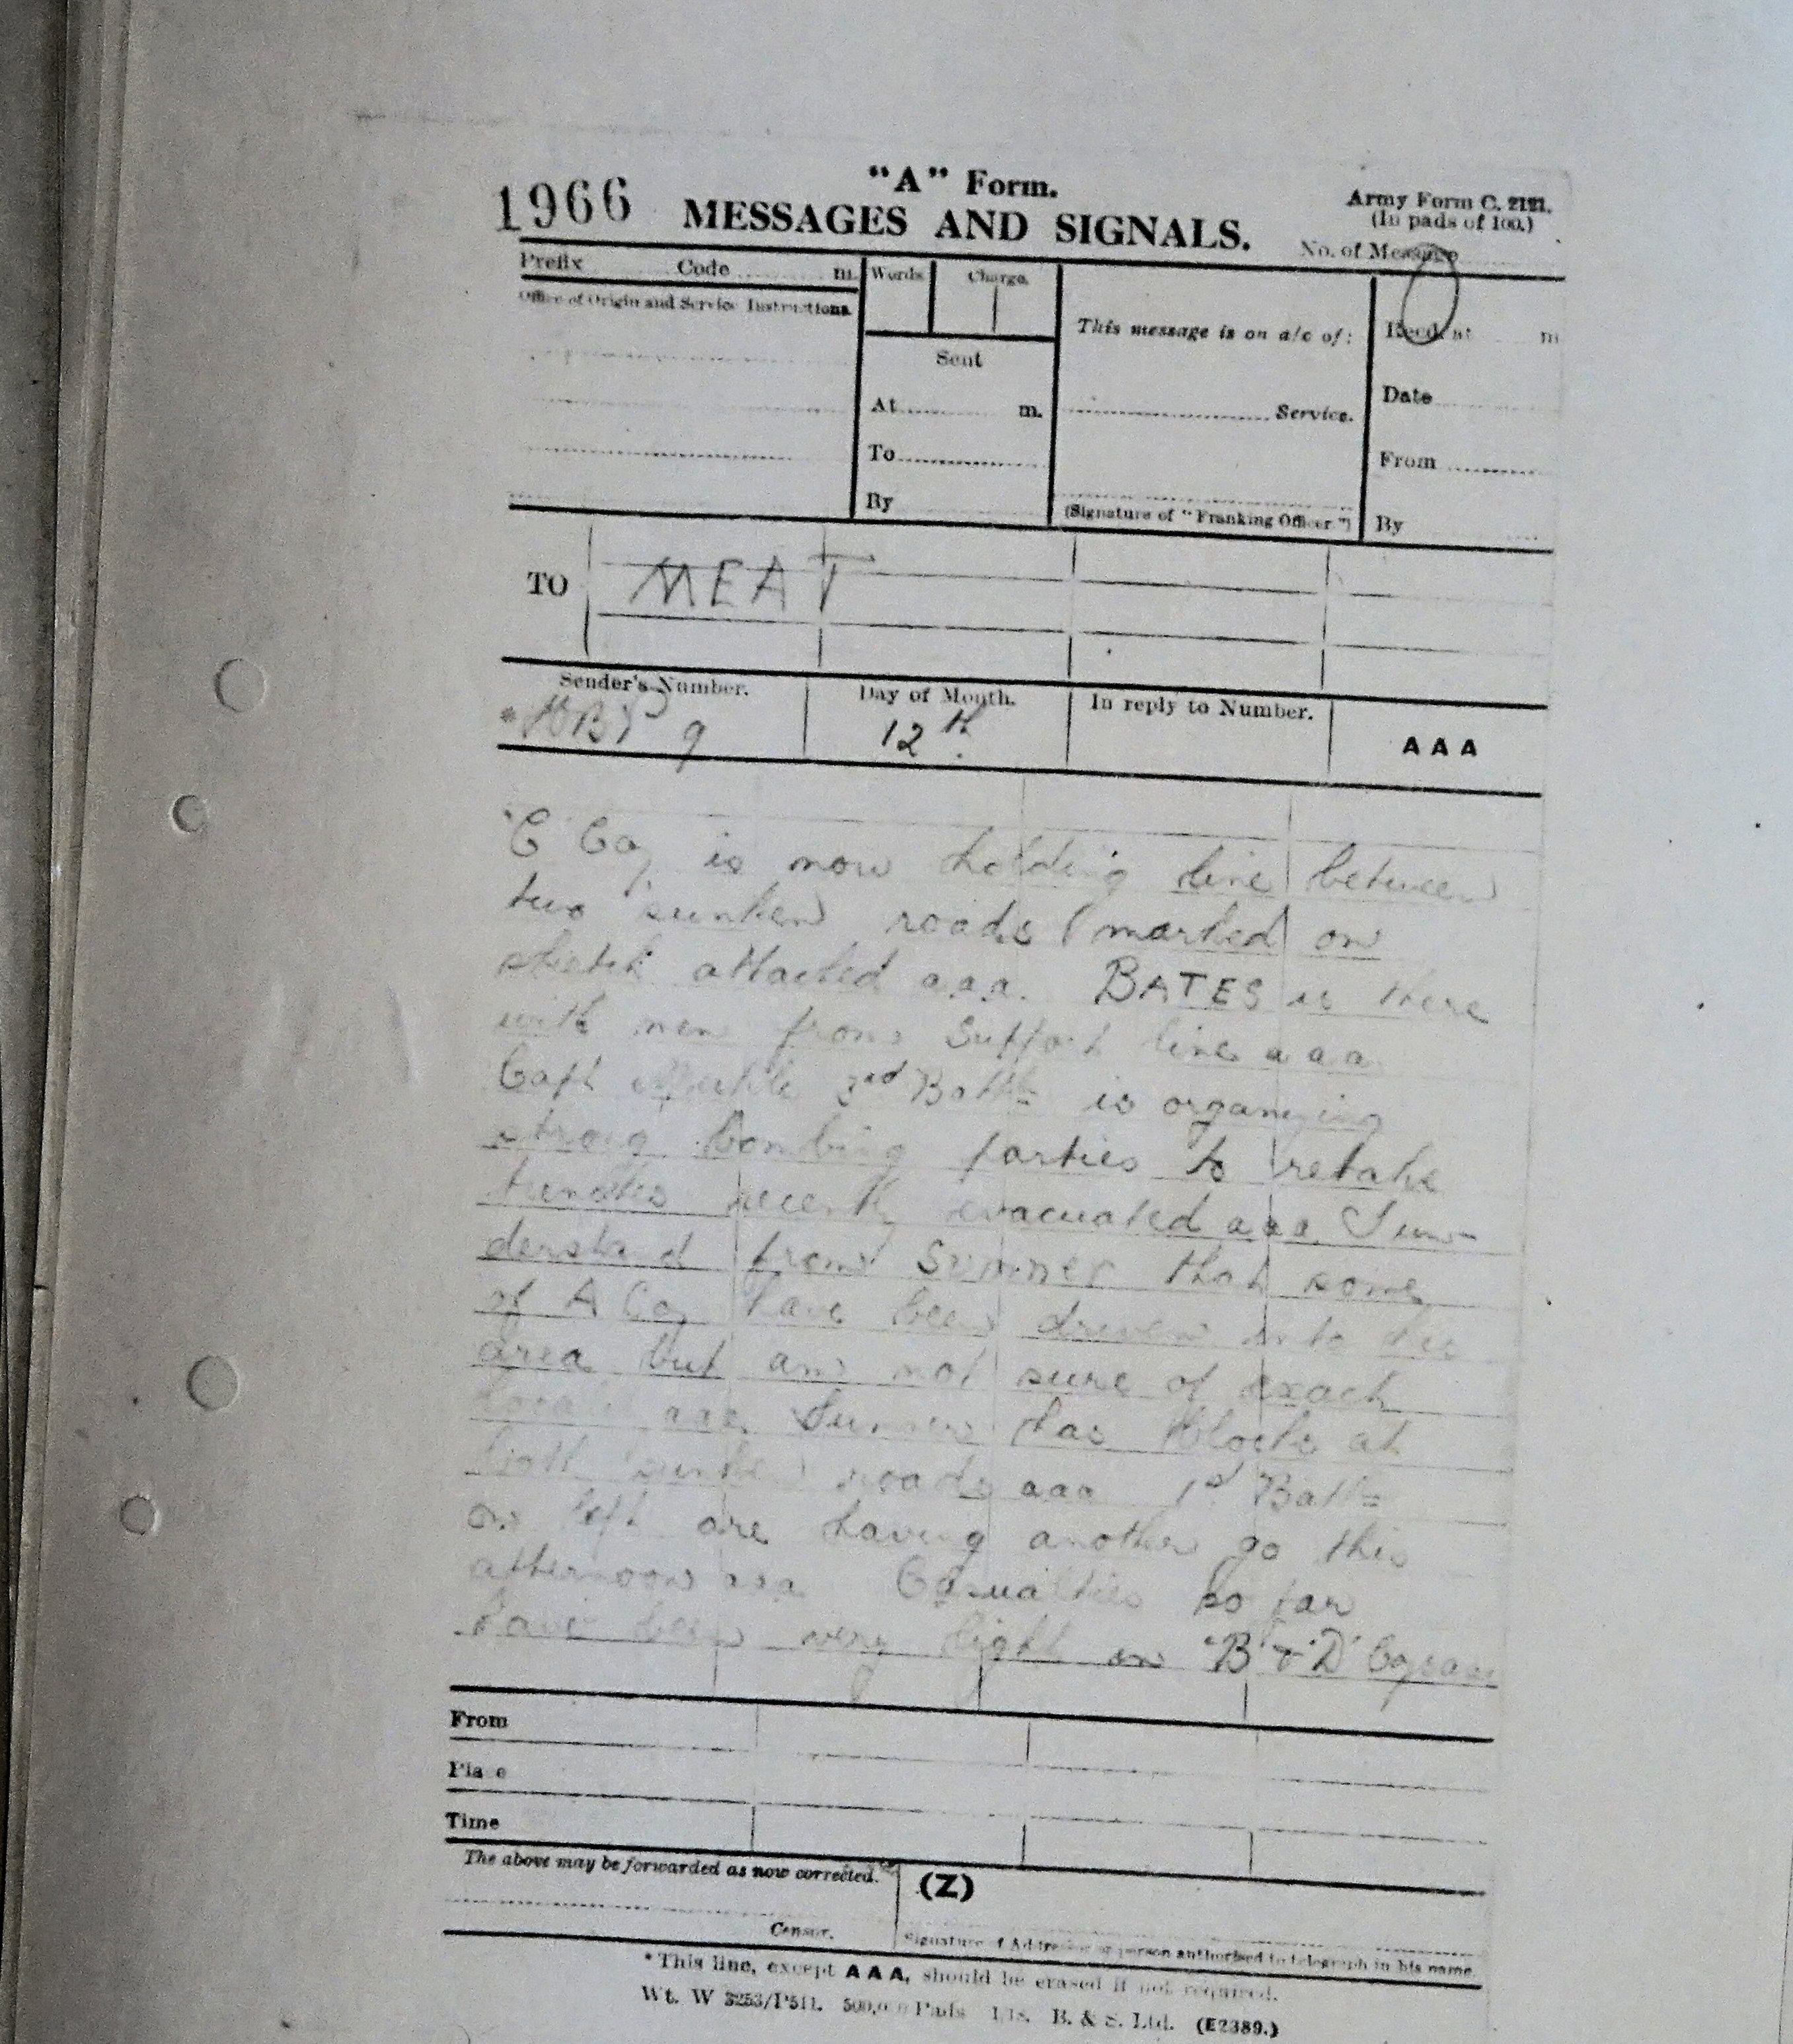 "A" Form.
1966 MESSAGES AND SIGNALS.
Army Form C. 2121.
(In pads of 100.)
No. of Message
Prefix Code m. Words Charge.
Office of Origin and Service Instructions.
This message is on a/c of:
Recd. at m
Sent
Date
At m. Service.
To From
By (Signature of "Franking Officer.") By
TO MEAT
Sender's Number. Day of Month. In reply to Number.
9 12th. AAA
'C' Coy is now holding line between
two sunken roads (marked on
sketch attached aaa. BATES is there
with men from Support line aaa
Capt 3rd Battn is organizing
strong bombing parties to retake
trenches recently evacuated aaa I un-
derstand from Sumner that some
of A Coy have been driven into
area but am not sure of exact
aaa Sumner has blocks at
both sunken roads aaa 1st Battn
on left are having another go this
afternoon aaa Casualties so far
have been very light in 'B' & 'D'
From
Place
Time
The above may be forwarded as now corrected. (Z)
Censor. Signature of Addressor or person authorised to telegraph in his name.
* This line, except AAA, should be erased if not required.
Wt. W 3253/P511. 500,000 Pads B. & S. Ltd. (E2389.)